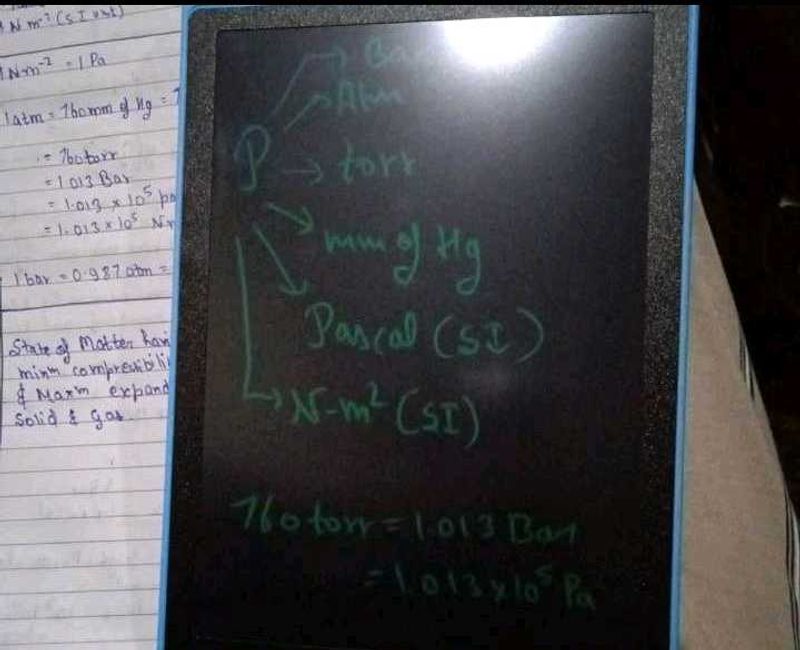 N m⁻² (S I unit)
1 N-m⁻² = 1 Pa
1 atm = 760 mm of Hg =
= 760 torr
= 1.013 Bar
= 1.013 x 10⁵ pa
= 1.013 x 10⁵ N
1 bar = 0.987 atm =
State of Matter
minm
& Maxm expand
Solid & Gas
→ Bar
→ Atm
P → torr
mm of Hg
Pascal (SI)
→ N-m² (SI)
760 torr = 1.013 Bar
= 1.013 x 10⁵ Pa